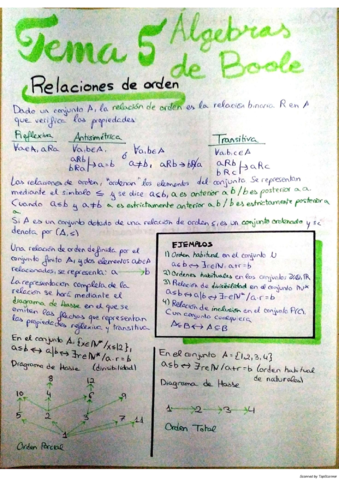 Tema 5 Álgebras
de Boole
Relaciones de orden
Dado un conjunto A, la relación de orden es la relación binaria R en A
que verifica las propiedades:
Reflexiva Antisimétrica Transitiva
∀a∈A, aRa ∀a,b∈A, ó ∀a,b∈A ∀a,b,c∈A
aRb
bRa / → a=b a≠b, aRb → bRa aRb
bRc / → aRc
Las relaciones de orden, "ordenan" los elementos del conjunto. Se representan
mediante el símbolo ≤ y se dice a≤b, a es anterior a b / b es posterior a a.
Cuando a≤b y a≠b a es estrictamente anterior a b / b es estrictamente posterior a
a.
Si A es un conjunto dotado de una relación de orden ≤, es un conjunto ordenado y se
denota por (A, ≤)
Una relación de orden definida por el
conjunto finito A, y dos elementos a,b∈A
relacionados, se representa: a → b
La representación completa de la
relación se hará mediante el
diagrama de Hasse en el que se
omiten las flechas que representan
las propiedades reflexiva y transitiva.
EJEMPLOS
1) Orden habitual en el conjunto ℕ
a≤b ↔ ∃r∈ℕ/a+r=b
2) Ordenes habituales en los conjuntos
3) Relación de divisibilidad en el conjunto ℕ*
a≤b ↔ a/b ↔ ∃r∈ℕ*/a·r=b
4) Relación de inclusión en el conjunto P(C).
Con conjunto cualquiera
A≤B ↔ A⊆B
En el conjunto A={x∈ℕ*/x≤12},
a≤b ↔ a/b ↔ ∃r∈ℕ*/a·r=b
Diagrama de Hasse (divisibilidad)
8 12
10 4 6 9
5 2 3 7 11
1
Orden Parcial
En el conjunto A={1,2,3,4}
a≤b ↔ ∃r∈ℕ/a+r=b (orden habitual
de naturales)
Diagrama de Hasse
1 → 2 → 3 → 4
Orden Total
Scanned by TapScanner